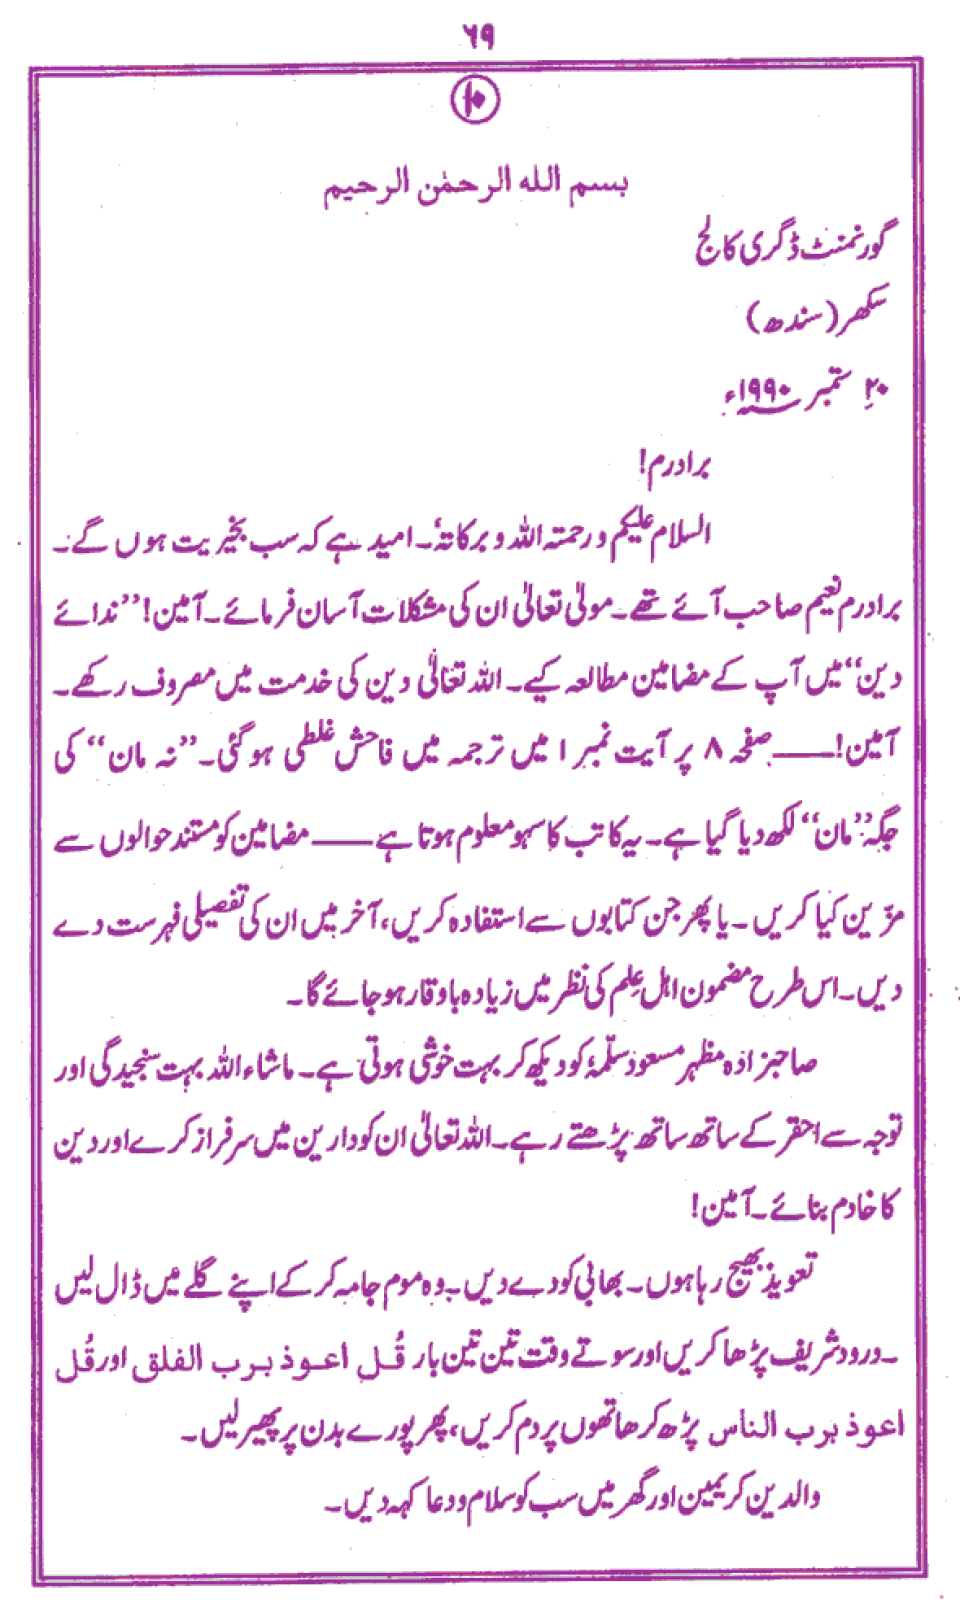 ۶۹
۱۰
بسم الله الرحمٰن الرحیم
گورنمنٹ ڈگری کالج
سکھر (سندھ)
۲۰ ستمبر ۱۹۹۰ء
برادرم!
السلام علیکم ورحمتہ اللہ وبرکاتہٗ۔ امید ہے کہ سب بخیریت ہوں گے۔
برادرم نعیم صاحب آئے تھے۔ مولیٰ تعالیٰ ان کی مشکلات آسان فرمائے۔ آمین! ’’ندائے
دین‘‘ میں آپ کے مضامین مطالعہ کیے۔ اللہ تعالیٰ دین کی خدمت میں مصروف رکھے۔
آمین! ——— صفحہ ۸ پر آیت نمبر ۱ میں ترجمہ میں فاحش غلطی ہوگئی۔ ’’نہ مان‘‘ کی
جگہ ’’مان‘‘ لکھ دیا گیا ہے۔ یہ کاتب کا سہو معلوم ہوتا ہے ——— مضامین کو مستند حوالوں سے
مزّین کیا کریں۔ یا پھر جن کتابوں سے استفادہ کریں، آخر میں ان کی تفصیلی فہرست دے
دیں۔ اس طرح مضمون اہل عِلم کی نظر میں زیادہ باوقار ہو جائے گا۔
صاحبزادہ مظہر مسعود سلّمہٗ کو دیکھ کر بہت خوشی ہوتی ہے۔ ماشاء اللہ بہت سنجیدگی اور
توجہ سے احقر کے ساتھ ساتھ پڑھتے رہے۔ اللہ تعالیٰ ان کو دارین میں سرفراز کرے اور دین
کا خادم بنائے۔ آمین!
تعویذ بھیج رہا ہوں۔ بھابی کو دے دیں۔ وہ موم جامہ کر کے اپنے گلے میں ڈال لیں
۔ درود شریف پڑھا کریں اور سوتے وقت تین تین بار قُل اعوذ برب الفلق اور قُل
اعوذ برب الناس پڑھ کر ھاتھوں پر دم کریں، پھر پورے بدن پر پھیر لیں۔
والدین کریمین اور گھر میں سب کو سلام و دعا کہہ دیں۔